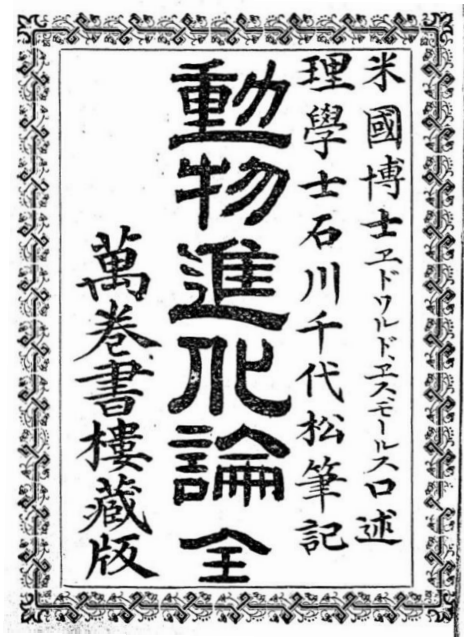 米國博士ヱドワルド、ヱスモールス口述
理學士石川千代松筆記
動物進化論 全
萬巻書樓藏版